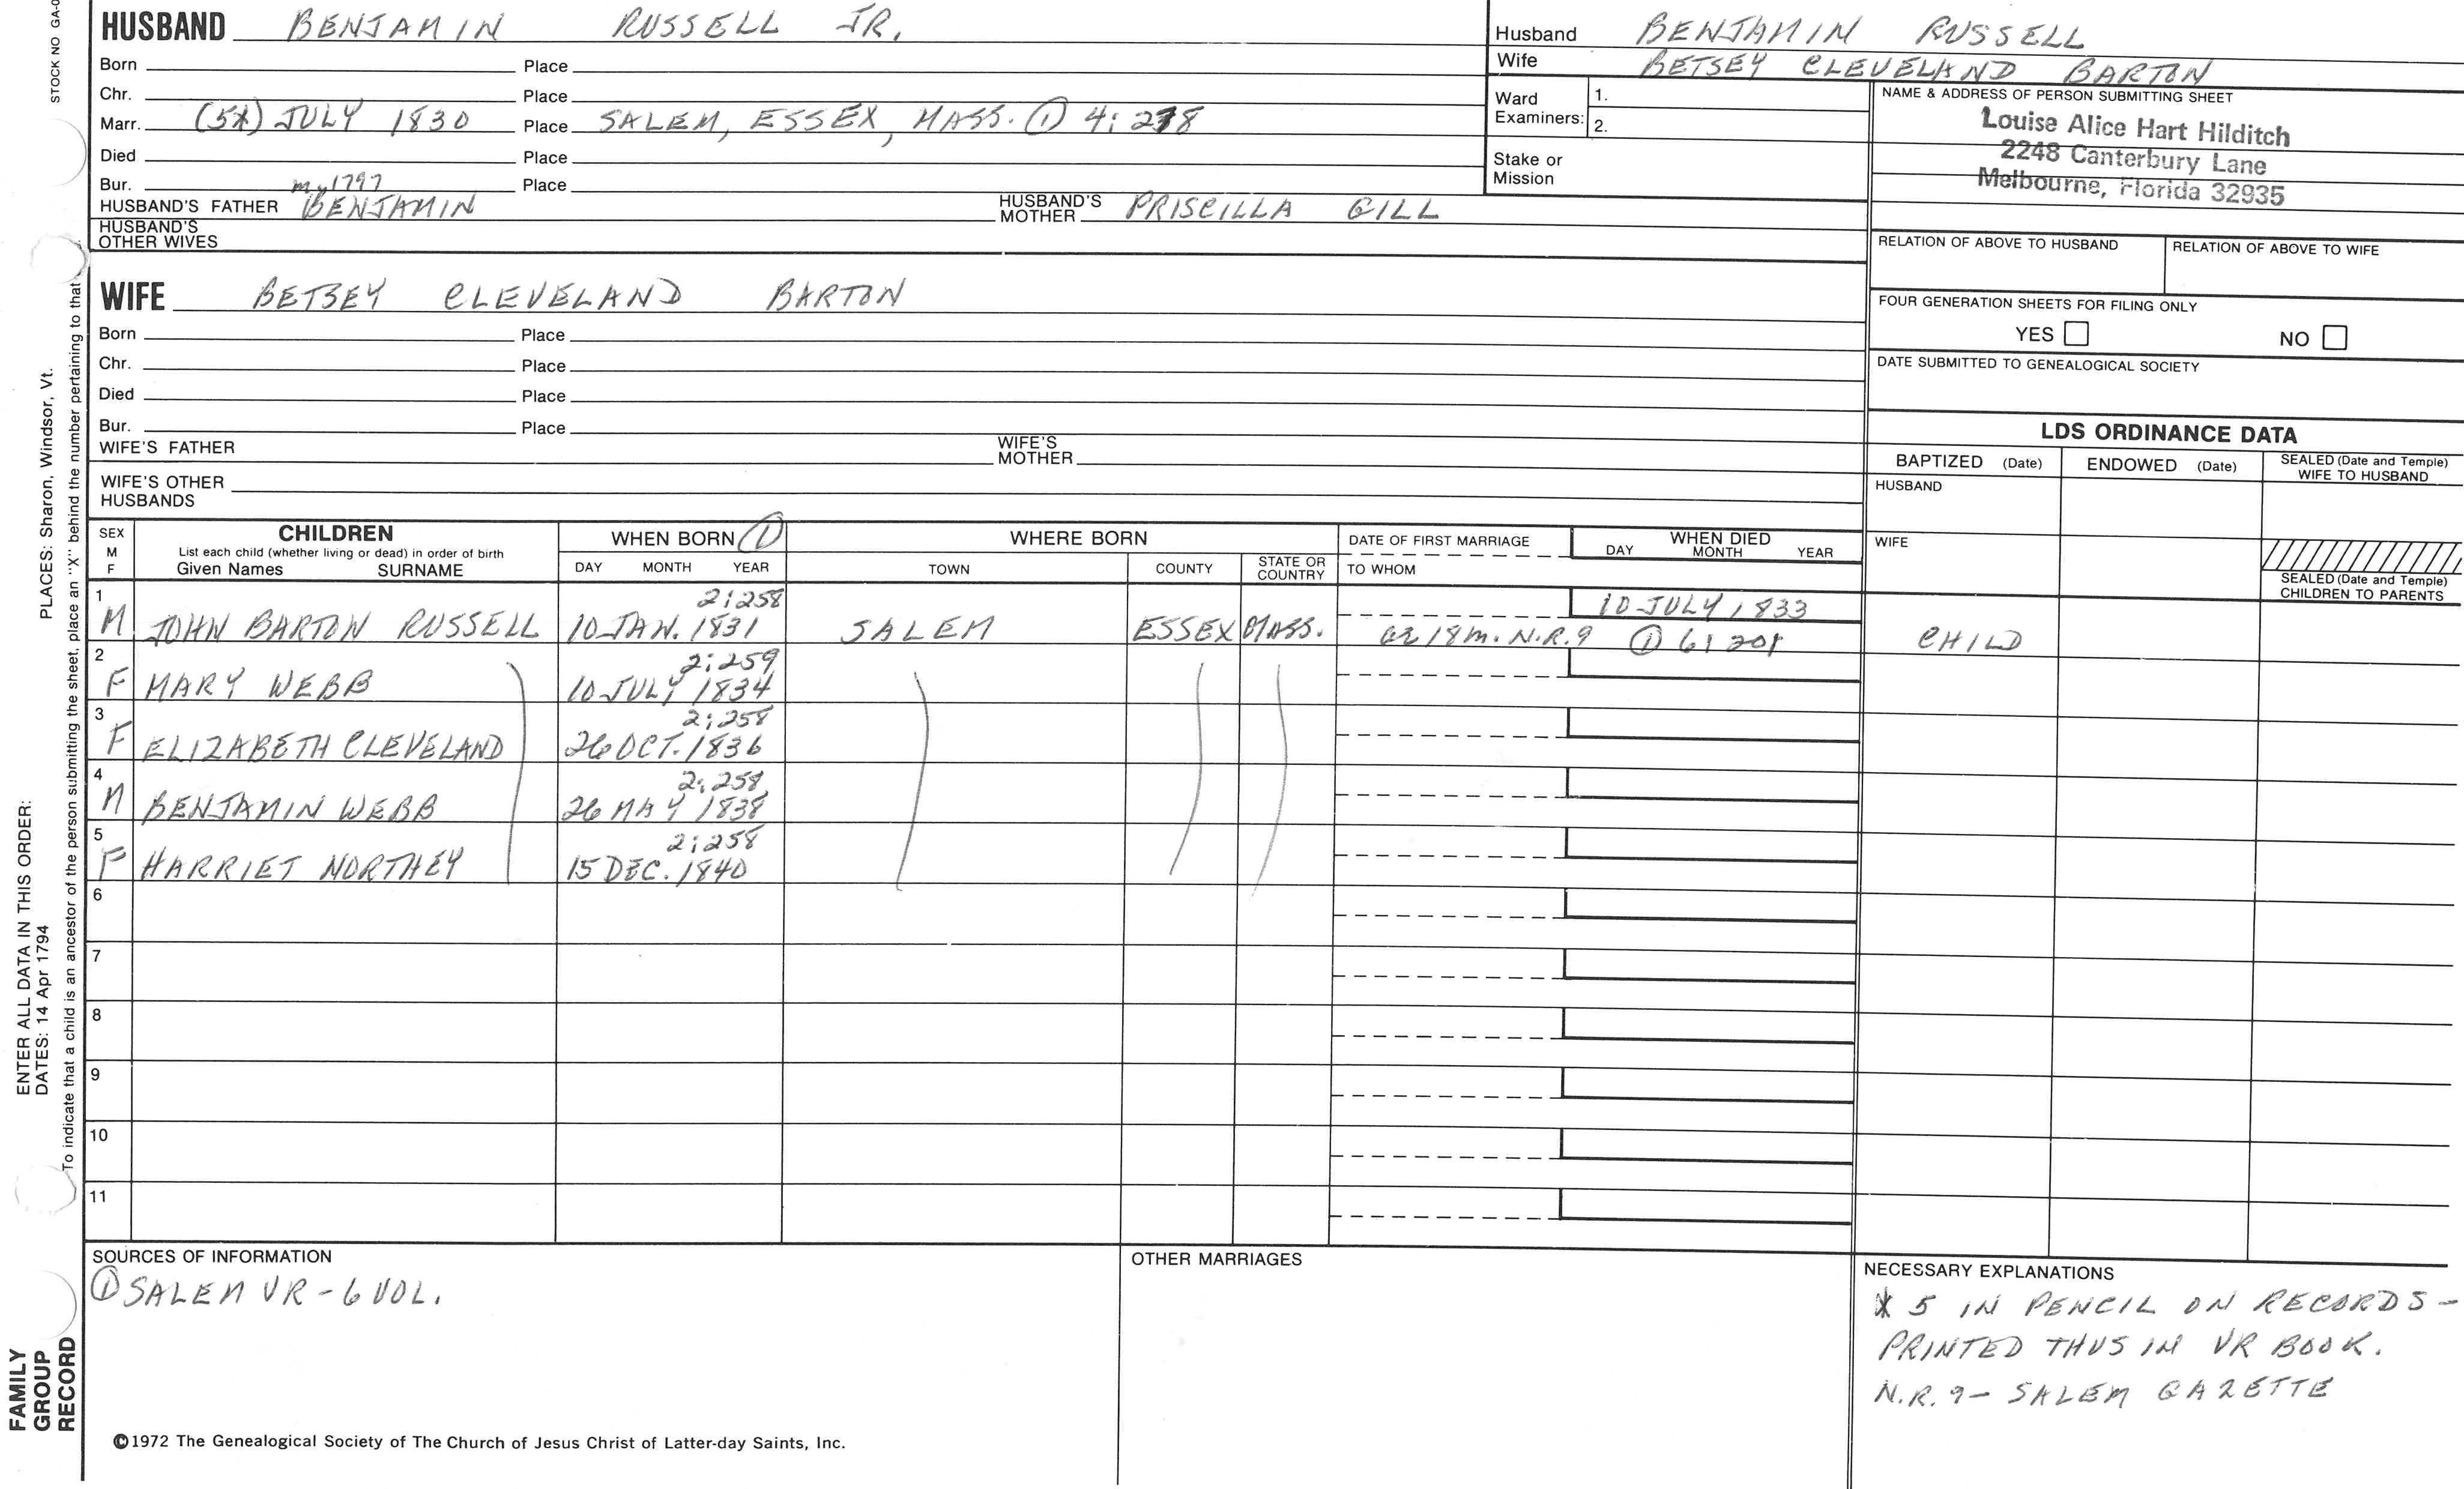 STOCK NO GA-0
HUSBAND BENJAMIN RUSSELL JR.
Born Place
Chr. Place
Marr. (5*) JULY 1830 Place SALEM, ESSEX, MASS. ① 4:278
Died Place
Bur. Place
m. 1797
HUSBAND'S FATHER BENJAMIN HUSBAND'S MOTHER PRISCILLA GILL
HUSBAND'S OTHER WIVES
WIFE BETSEY CLEVELAND BARTON
Born Place
Chr. Place
Died Place
Bur. Place
WIFE'S FATHER WIFE'S MOTHER
WIFE'S OTHER HUSBANDS
Husband BENJAMIN RUSSELL
Wife BETSEY CLEVELAND BARTON
Ward Examiners: 1.
2.
Stake or Mission
NAME & ADDRESS OF PERSON SUBMITTING SHEET
Louise Alice Hart Hilditch
2248 Canterbury Lane
Melbourne, Florida 32935
RELATION OF ABOVE TO HUSBAND RELATION OF ABOVE TO WIFE
FOUR GENERATION SHEETS FOR FILING ONLY
YES NO
DATE SUBMITTED TO GENEALOGICAL SOCIETY
LDS ORDINANCE DATA
BAPTIZED (Date) ENDOWED (Date) SEALED (Date and Temple) WIFE TO HUSBAND
HUSBAND
WIFE
SEALED (Date and Temple) CHILDREN TO PARENTS
SEX M F CHILDREN WHEN BORN ① WHERE BORN DATE OF FIRST MARRIAGE WHEN DIED
List each child (whether living or dead) in order of birth
Given Names SURNAME DAY MONTH YEAR TOWN COUNTY STATE OR COUNTRY TO WHOM DAY MONTH YEAR
1 2:258 10 JULY 1833
M JOHN BARTON RUSSELL 10 JAN. 1831 SALEM ESSEX MASS. ae 18m. N.R.9 ① 6:201 CHILD
2 2:259
F MARY WEBB 10 JULY 1834
3 2:258
F ELIZABETH CLEVELAND 26 OCT. 1836
4 2:258
M BENJAMIN WEBB 26 MAY 1838
5 2:258
F HARRIET NORTHEY 15 DEC. 1840
6
7
8
9
10
11
SOURCES OF INFORMATION
① SALEM VR - 6 VOL.
OTHER MARRIAGES
NECESSARY EXPLANATIONS
* 5 IN PENCIL ON RECORDS -
PRINTED THUS IN VR BOOK.
N.R. 9 - SALEM GAZETTE
©1972 The Genealogical Society of The Church of Jesus Christ of Latter-day Saints, Inc.
FAMILY GROUP RECORD
ENTER ALL DATA IN THIS ORDER:
DATES: 14 Apr 1794
PLACES: Sharon, Windsor, Vt.
To indicate that a child is an ancestor of the person submitting the sheet, place an "X" behind the number pertaining to that